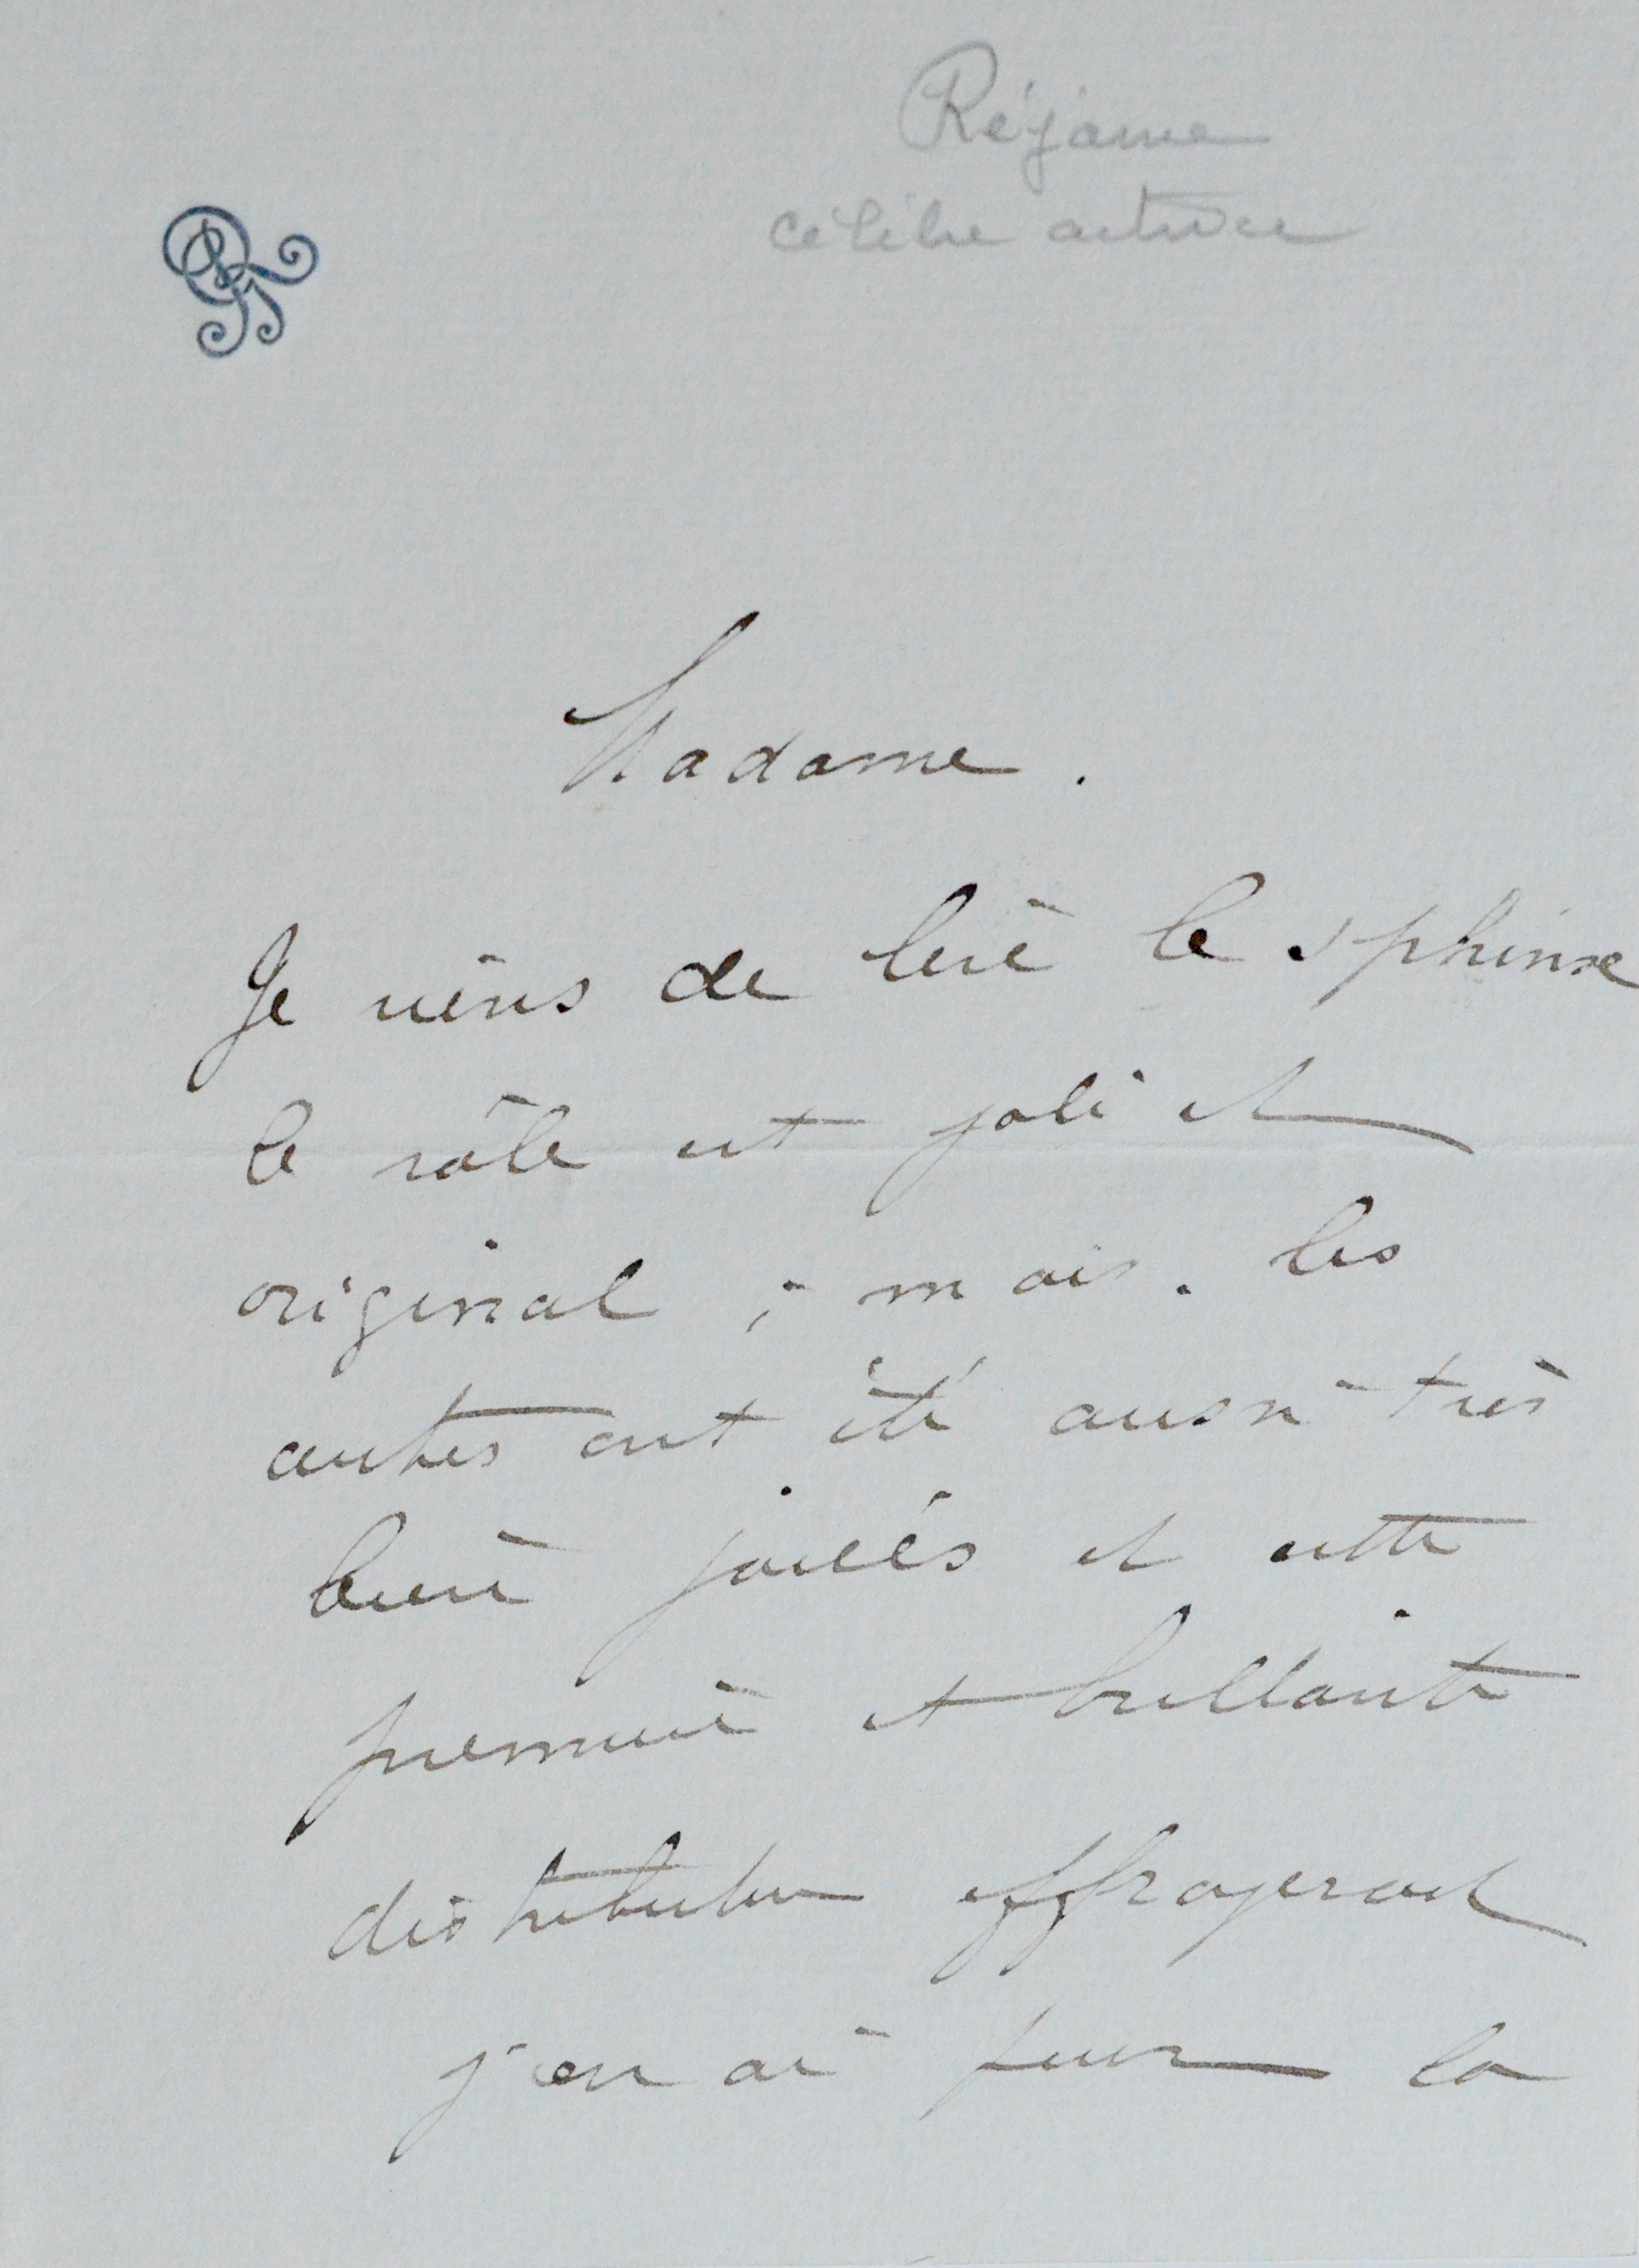 Réjane
célèbre actrice
Madame.
Je viens de lire le sphinx
le rôle est joli et
original ; mais. les
autres ont été aussi très
bien joués et cette
première et brillante
distribution effrayerait
j'en ai peur la